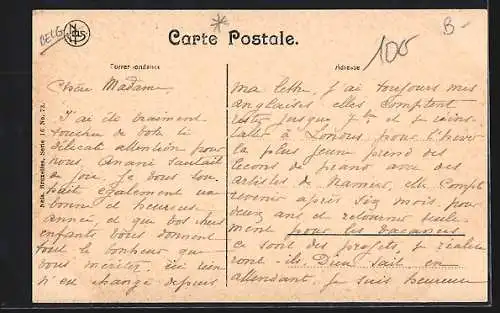 BELG
Nels
B-
100
Carte Postale.
Correspondance
Adresse
Nels, Bruxelles, Serie 16 No. 72.
Chère Madame
J'ai été vraiment
touchée de votre si
délicate attention pour
nous, sautait
de joie, je vous sou
haite également une
bonne et heureuse
année, et que vos chers
enfants vous donnent
tout le bonheur que
vous méritez. ici rien
n'est changé depuis
ma lettre, j'ai toujours mes
anglaises, elles comptent
rester jusque et
à Londres pour l'hiver
la plus jeune prend des
leçons de piano avec des
artistes de Namur, elle compte
revenir après six mois, pour
deux ans et retourner seule
ment pour les vacances
ce sont des projets, se réalise
ront-ils. Dieu sait en
attendant, je suis heureuse